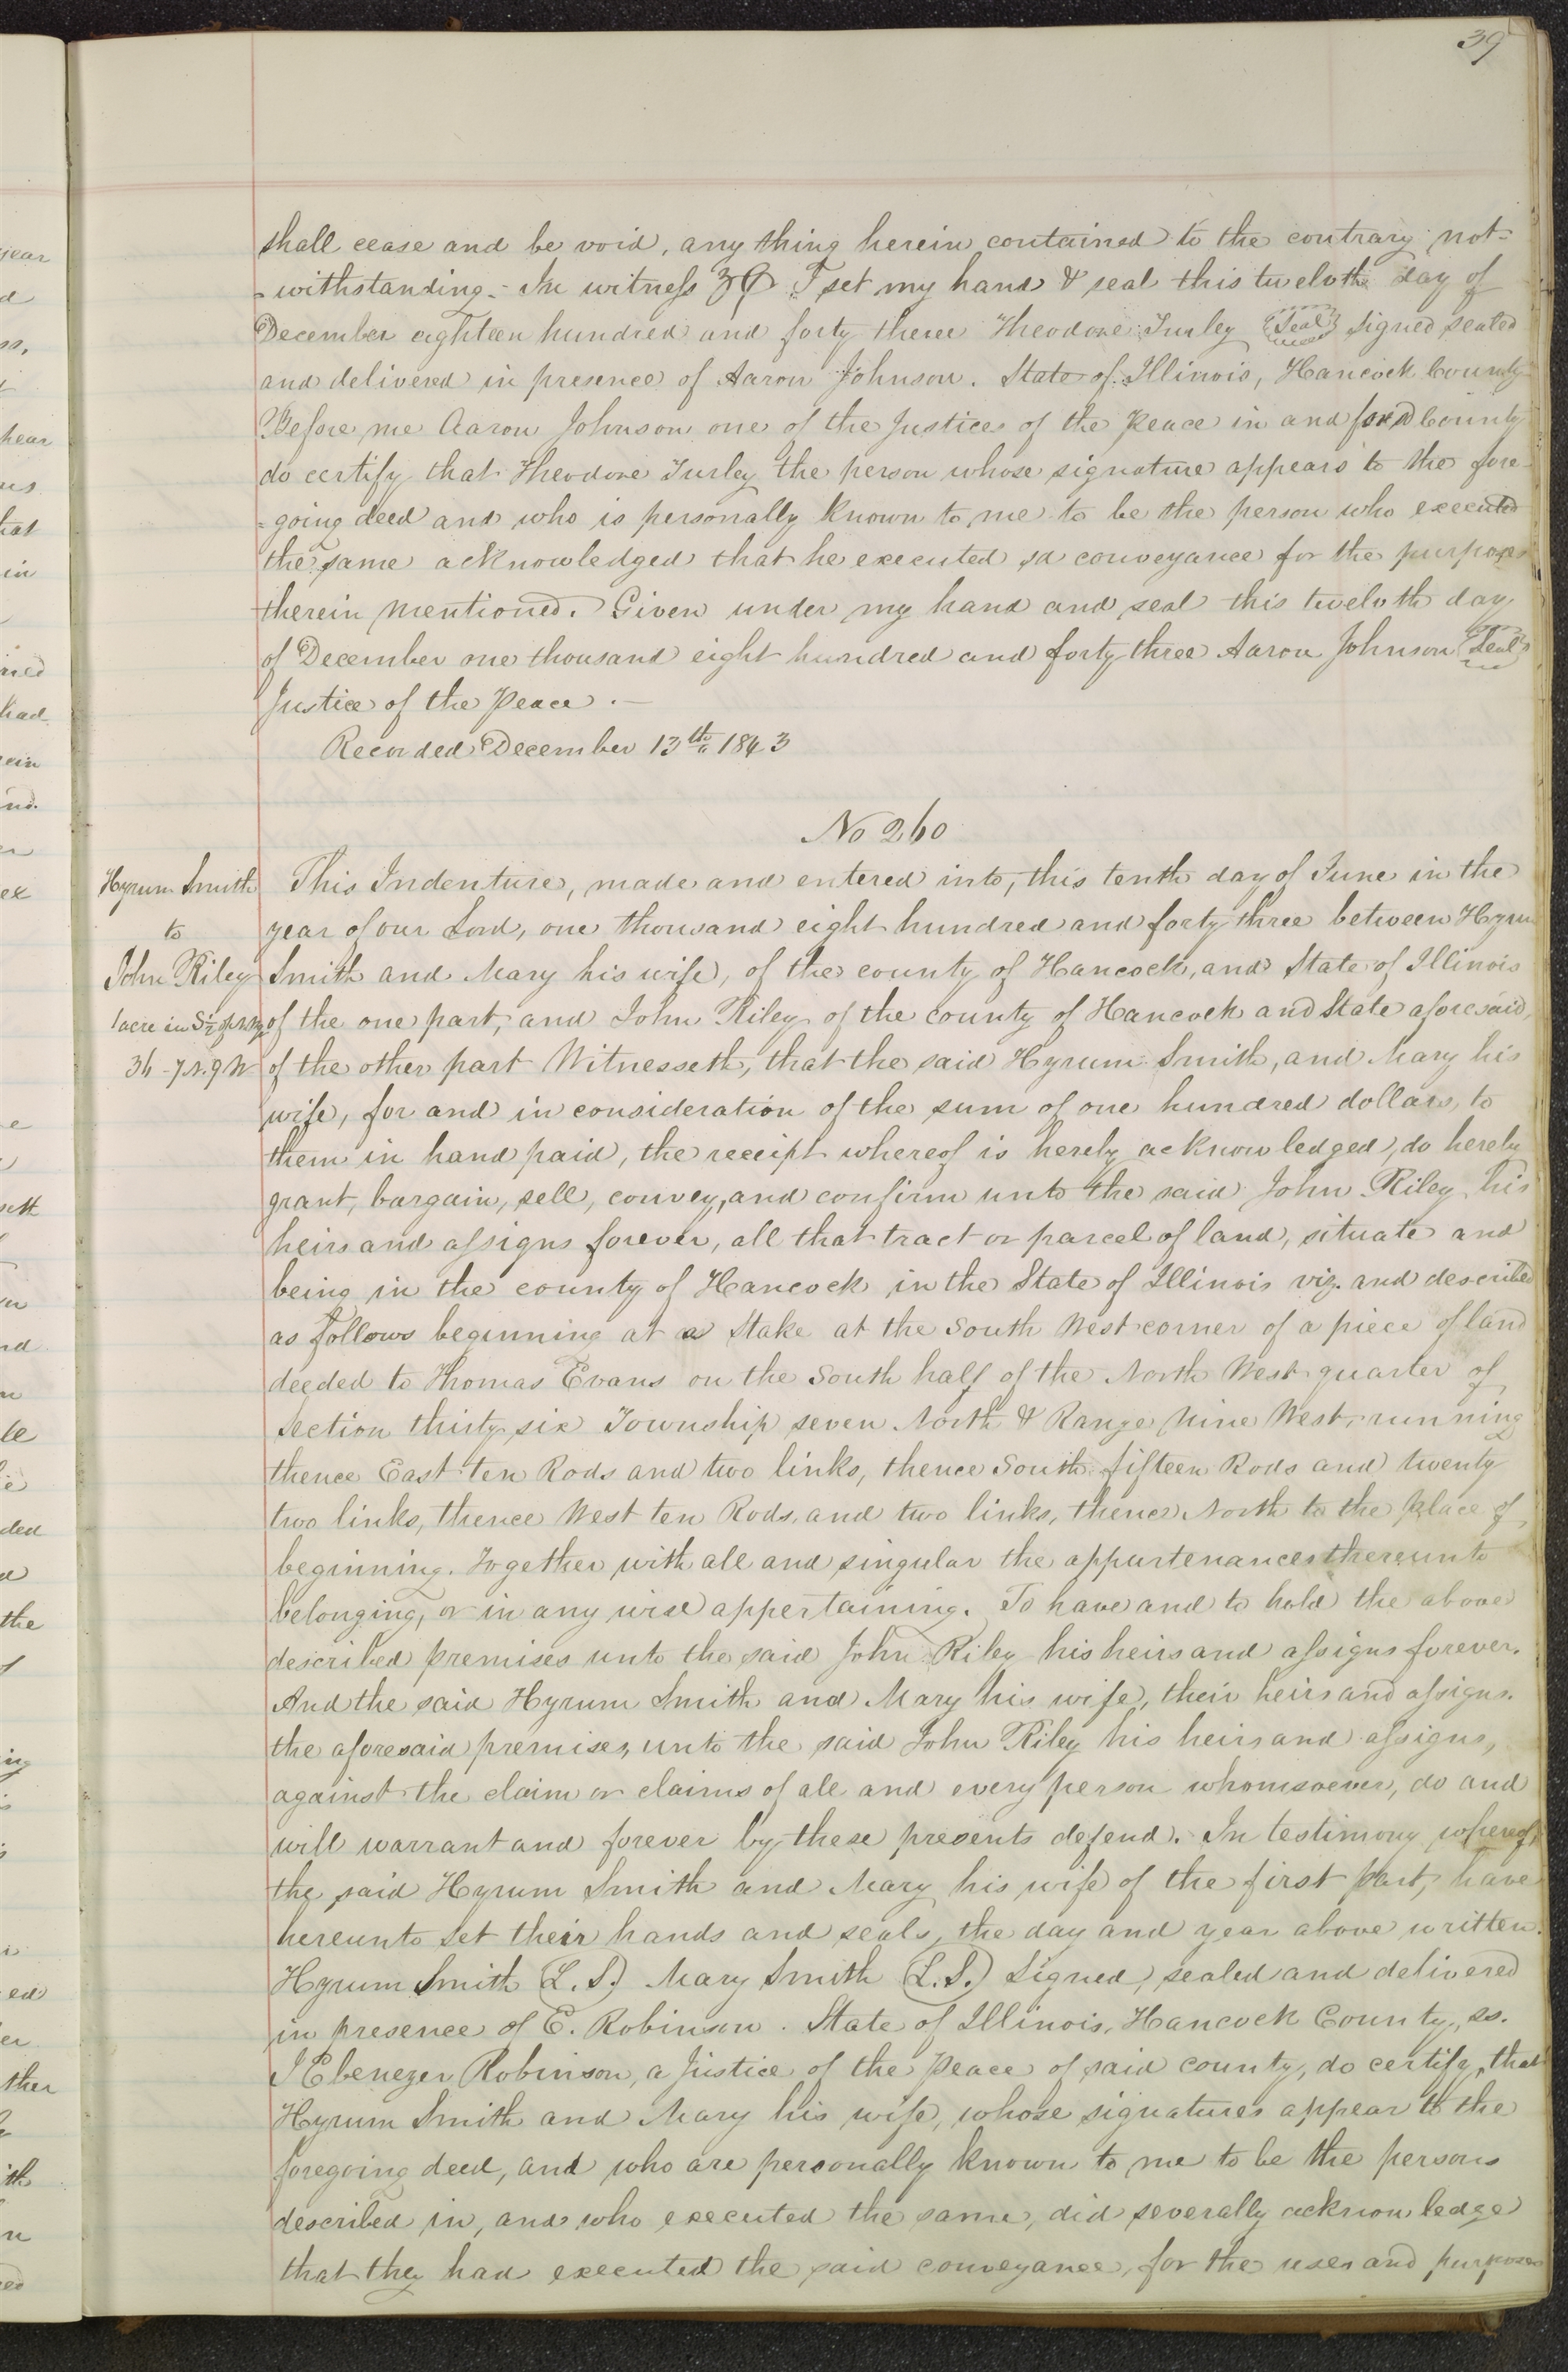 39
shall cease and be void, any thing herein contained to the contrary not-
-withstanding.- In witness I set my hand & seal this twelvth day of
December eighteen hundred and forty three Theodore Turley (Seal) Signed sealed
and delivered in presence of Aaron Johnson. State of Illinois, Hancock County
Before me Aaron Johnson one of the Justices of the Peace in and for sd County
do certify that Theodore Turley the person whose signature appears to the fore-
-going deed and who is personally known to me to be the person who executed
the same acknowledged that he executed sd conveyance for the purposes
therein mentioned. Given under my hand and seal this twelvth day
of December one thousand eight hundred and forty three Aaron Johnson (Seal)
Justice of the Peace.-
Recorded December 13th 1843
No 260
Hyrum Smith
to
John Riley
1 acre in S½ of NW¼
36-7N.9W
This Indenture, made and entered into, this tenth day of June in the
year of our Lord, one thousand eight hundred and forty three between Hyrum
Smith and Mary his wife, of the county of Hancock, and State of Illinois
of the one part, and John Riley of the county of Hancock and State aforesaid,
of the other part Witnesseth, that the said Hyrum Smith, and Mary his
wife, for and in consideration of the sum of one hundred dollars, to
them in hand paid, the receipt whereof is hereby acknowledged, do hereby
grant, bargain, sell, convey, and confirm unto the said John Riley his
heirs and assigns forever, all that tract or parcel of land, situate and
being in the county of Hancock in the State of Illinois viz. and described
as follows beginning at a Stake at the South West corner of a piece of land
deeded to Thomas Evans on the South half of the North West quarter of
Section thirty six Township seven North & Range Nine West, running
thence East ten Rods and two links, thence South fifteen Rods and twenty
two links, thence West ten Rods, and two links, thence North to the place of
beginning. Together with all and singular the appurtenances thereunto
belonging, or in any wise appertaining. To have and to hold the above
described premises unto the said John Riley his heirs and assigns forever.
And the said Hyrum Smith and Mary his wife, their heirs and assigns.
the aforesaid premises, unto the said John Riley his heirs and assigns,
against the claim or claims of all and every person whomsoever, do and
will warrant and forever by these presents defend. In testimony whereof,
the said Hyrum Smith and Mary his wife of the first part, have
hereunto Set their hands and seals, the day and year above written.
Hyrum Smith (L.S.) Mary Smith (L.S.) Signed, sealed and delivered
in presence of E. Robinson. State of Illinois, Hancock County, ss.
I Ebenezer Robinson, a Justice of the Peace of said county, do certify, that
Hyrum Smith and Mary his wife, whose signatures appear to the
foregoing deed, and who are personally known to me to be the persons
described in, and who executed the same, did severally acknowledge
that they had executed the said conveyance, for the uses and purposes